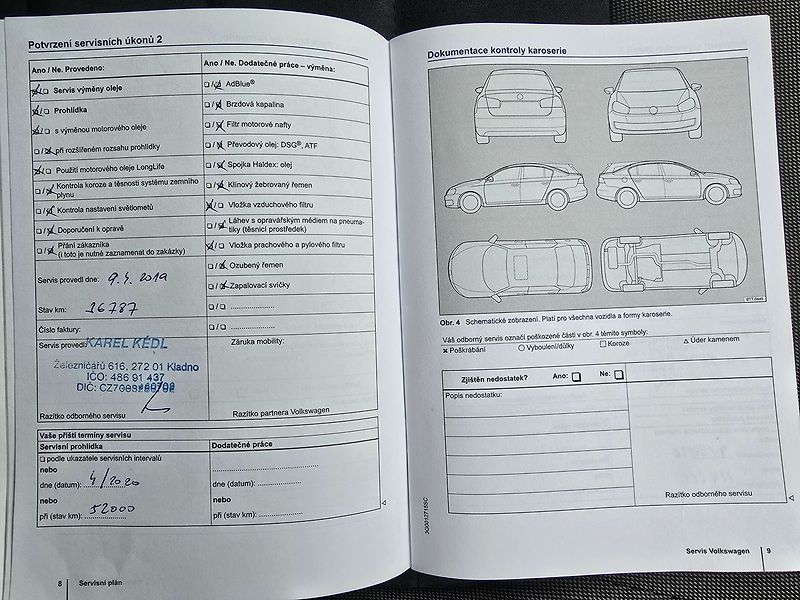 Potvrzení servisních úkonů 2
Ano / Ne. Provedeno:
□/□ Servis výměny oleje
□/□ Prohlídka
□/□ s výměnou motorového oleje
□/□ při rozšířeném rozsahu prohlídky
□/□ Použití motorového oleje LongLife
□/□ Kontrola koroze a těsnosti systému zemního
plynu
□/□ Kontrola nastavení světlometů
□/□ Doporučení k opravě
□/□ Přání zákazníka
(i toto je nutné zaznamenat do zakázky)
Servis provedl dne: 9.4.2019
Stav km: 36787
Číslo faktury:
Servis provedl:
KAREL KÉDL
Železničářů 616, 272 01 Kladno
IČO: 486 91 437
DIČ: 
Razítko odborného servisu
Ano / Ne. Dodatečné práce – výměna:
□/□ AdBlue®
□/□ Brzdová kapalina
□/□ Filtr motorové nafty
□/□ Převodový olej: DSG®, ATF
□/□ Spojka Haldex: olej
□/□ Klínový žebrovaný řemen
□/□ Vložka vzduchového filtru
□/□ Láhev s opravářským médiem na pneuma-
tiky (těsnicí prostředek)
□/□ Vložka prachového a pylového filtru
□/□ Ozubený řemen
□/□ Zapalovací svíčky
□/□ ....................
□/□ ....................
Záruka mobility:
Razítko partnera Volkswagen
Vaše příští termíny servisu
Servisní prohlídka
□ podle ukazatele servisních intervalů
nebo
dne (datum): 4/2020
nebo
při (stav km): 52000
Dodatečné práce
dne (datum): ....................
nebo
při (stav km): ....................
8 Servisní plán
Dokumentace kontroly karoserie
Obr. 4 Schematické zobrazení. Platí pro všechna vozidla a formy karoserie.
Váš odborný servis označí poškozené části v obr. 4 těmito symboly:
× Poškrábání ○ Vyboulení/důlky □ Koroze △ Úder kamenem
Zjištěn nedostatek? Ano: □ Ne: □
Popis nedostatku:
Razítko odborného servisu
3G0012715SC
Servis Volkswagen 9